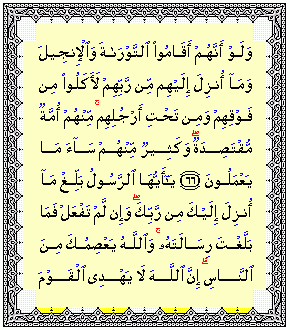 وَلَوْ أَنَّهُمْ أَقَامُوا۟ ٱلتَّوْرَىٰةَ وَٱلْإِنجِيلَ
وَمَآ أُنزِلَ إِلَيْهِم مِّن رَّبِّهِمْ لَأَكَلُوا۟ مِن
فَوْقِهِمْ وَمِن تَحْتِ أَرْجُلِهِم ۚ مِّنْهُمْ أُمَّةٌ
مُّقْتَصِدَةٌ ۖ وَكَثِيرٌ مِّنْهُمْ سَآءَ مَا
يَعْمَلُونَ ﴿٦٦﴾ يَـٰٓأَيُّهَا ٱلرَّسُولُ بَلِّغْ مَآ
أُنزِلَ إِلَيْكَ مِن رَّبِّكَ ۖ وَإِن لَّمْ تَفْعَلْ فَمَا
بَلَّغْتَ رِسَالَتَهُۥ ۚ وَٱللَّهُ يَعْصِمُكَ مِنَ
ٱلنَّاسِ ۗ إِنَّ ٱللَّهَ لَا يَهْدِى ٱلْقَوْمَ